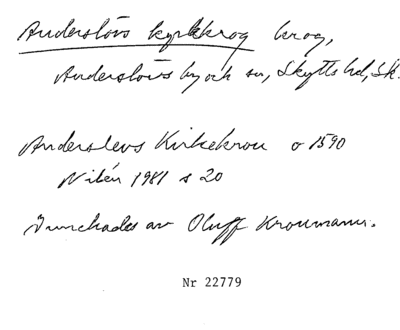 Anderslövs kyrkkrog krog,
Anderslövs by och sn, Skytts hd, Sk.
Anderslevs Kirkekrou o 1590
Nilén 1981 s 20
Innehades av Oluff Kroumann.
Nr 22779